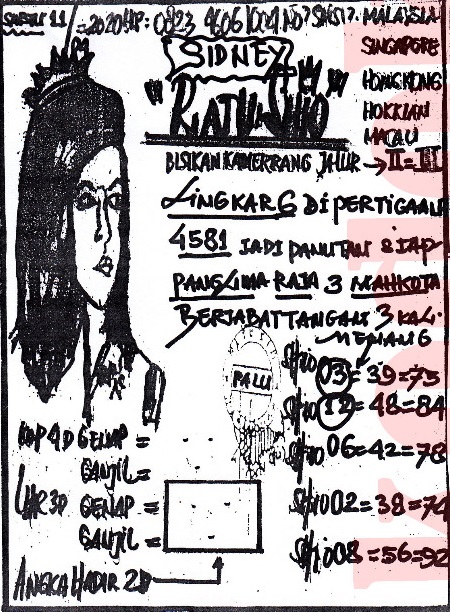 = 2020 HP: 0823 4606 1004
MALAYSIA
SIDNEY
SINGAPORE
HONGKONG
HOKKIAN
MACAU
"RATU SHIO"
BISIKAN KAMERRANG JALUR → II = III
LINGKAR 6 DI PERTIGAAN
4581 JADI PANUTAN SIAP
PANGLIMA RAJA 3 MAHKOTA
BERJABAT TANGAN 3 KALI
MENANG
PALU
Shio 03 = 39 = 75
Shio 12 = 48 = 84
Shio 06 = 42 = 78
Shio 02 = 38 = 74
Shio 08 = 56 = 92
KOP 4D GENAP =
GANJIL =
EKOR 3D GENAP =
GANJIL =
ANGKA HADIR 2D